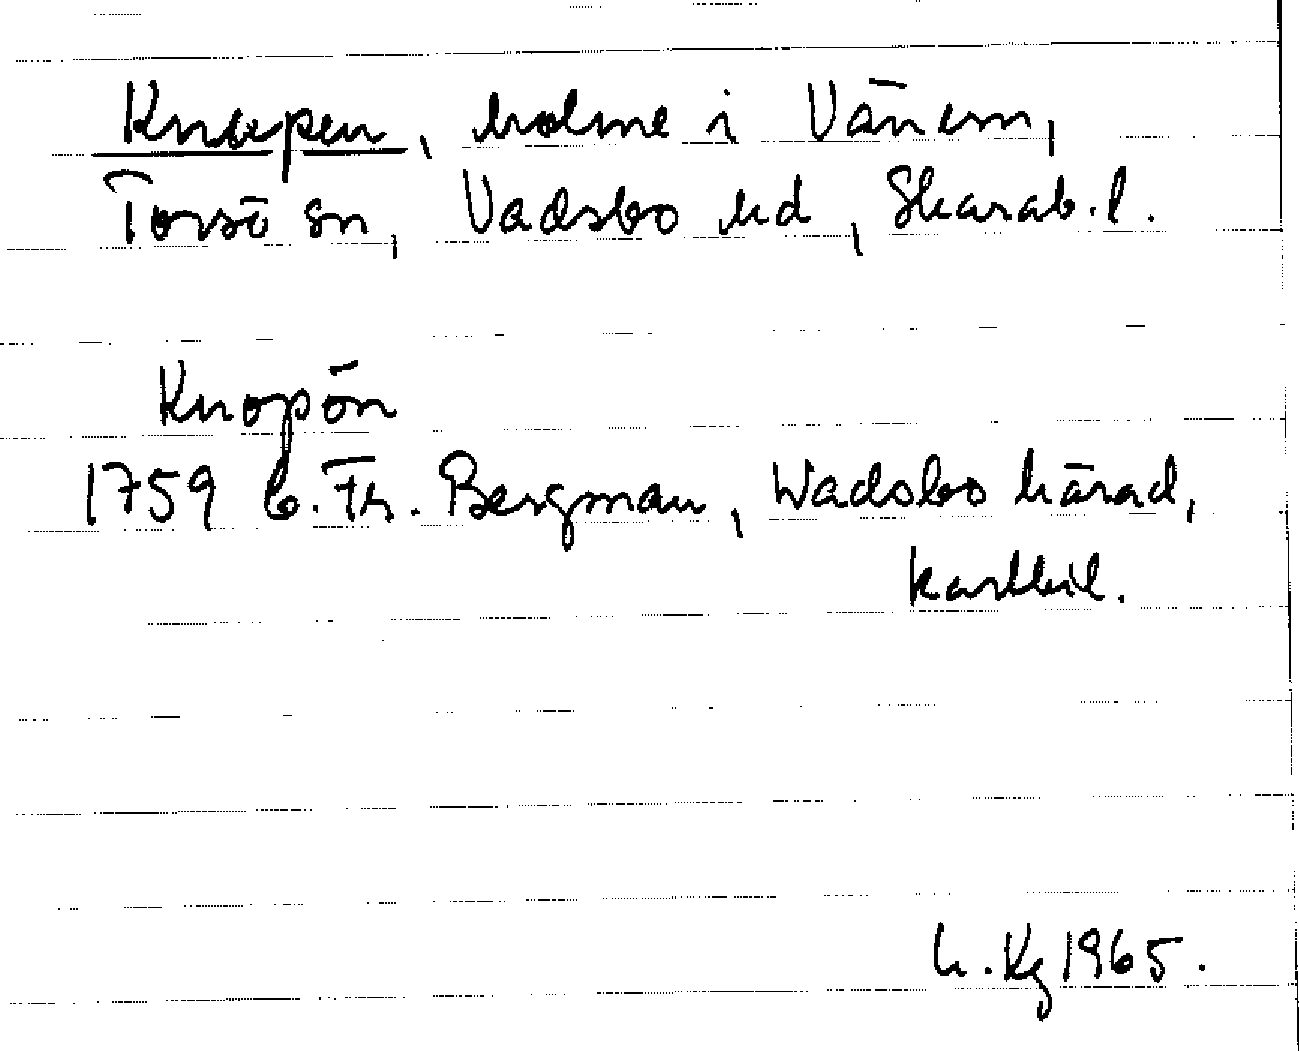 Knapen, holme i Vänern,
Torsö sn, Vadsbo hd, Skarab. l.
Knopön
1759 C. Fr. Bergman, Wadsbo härad,
kartbil.
h. Kg 1965.